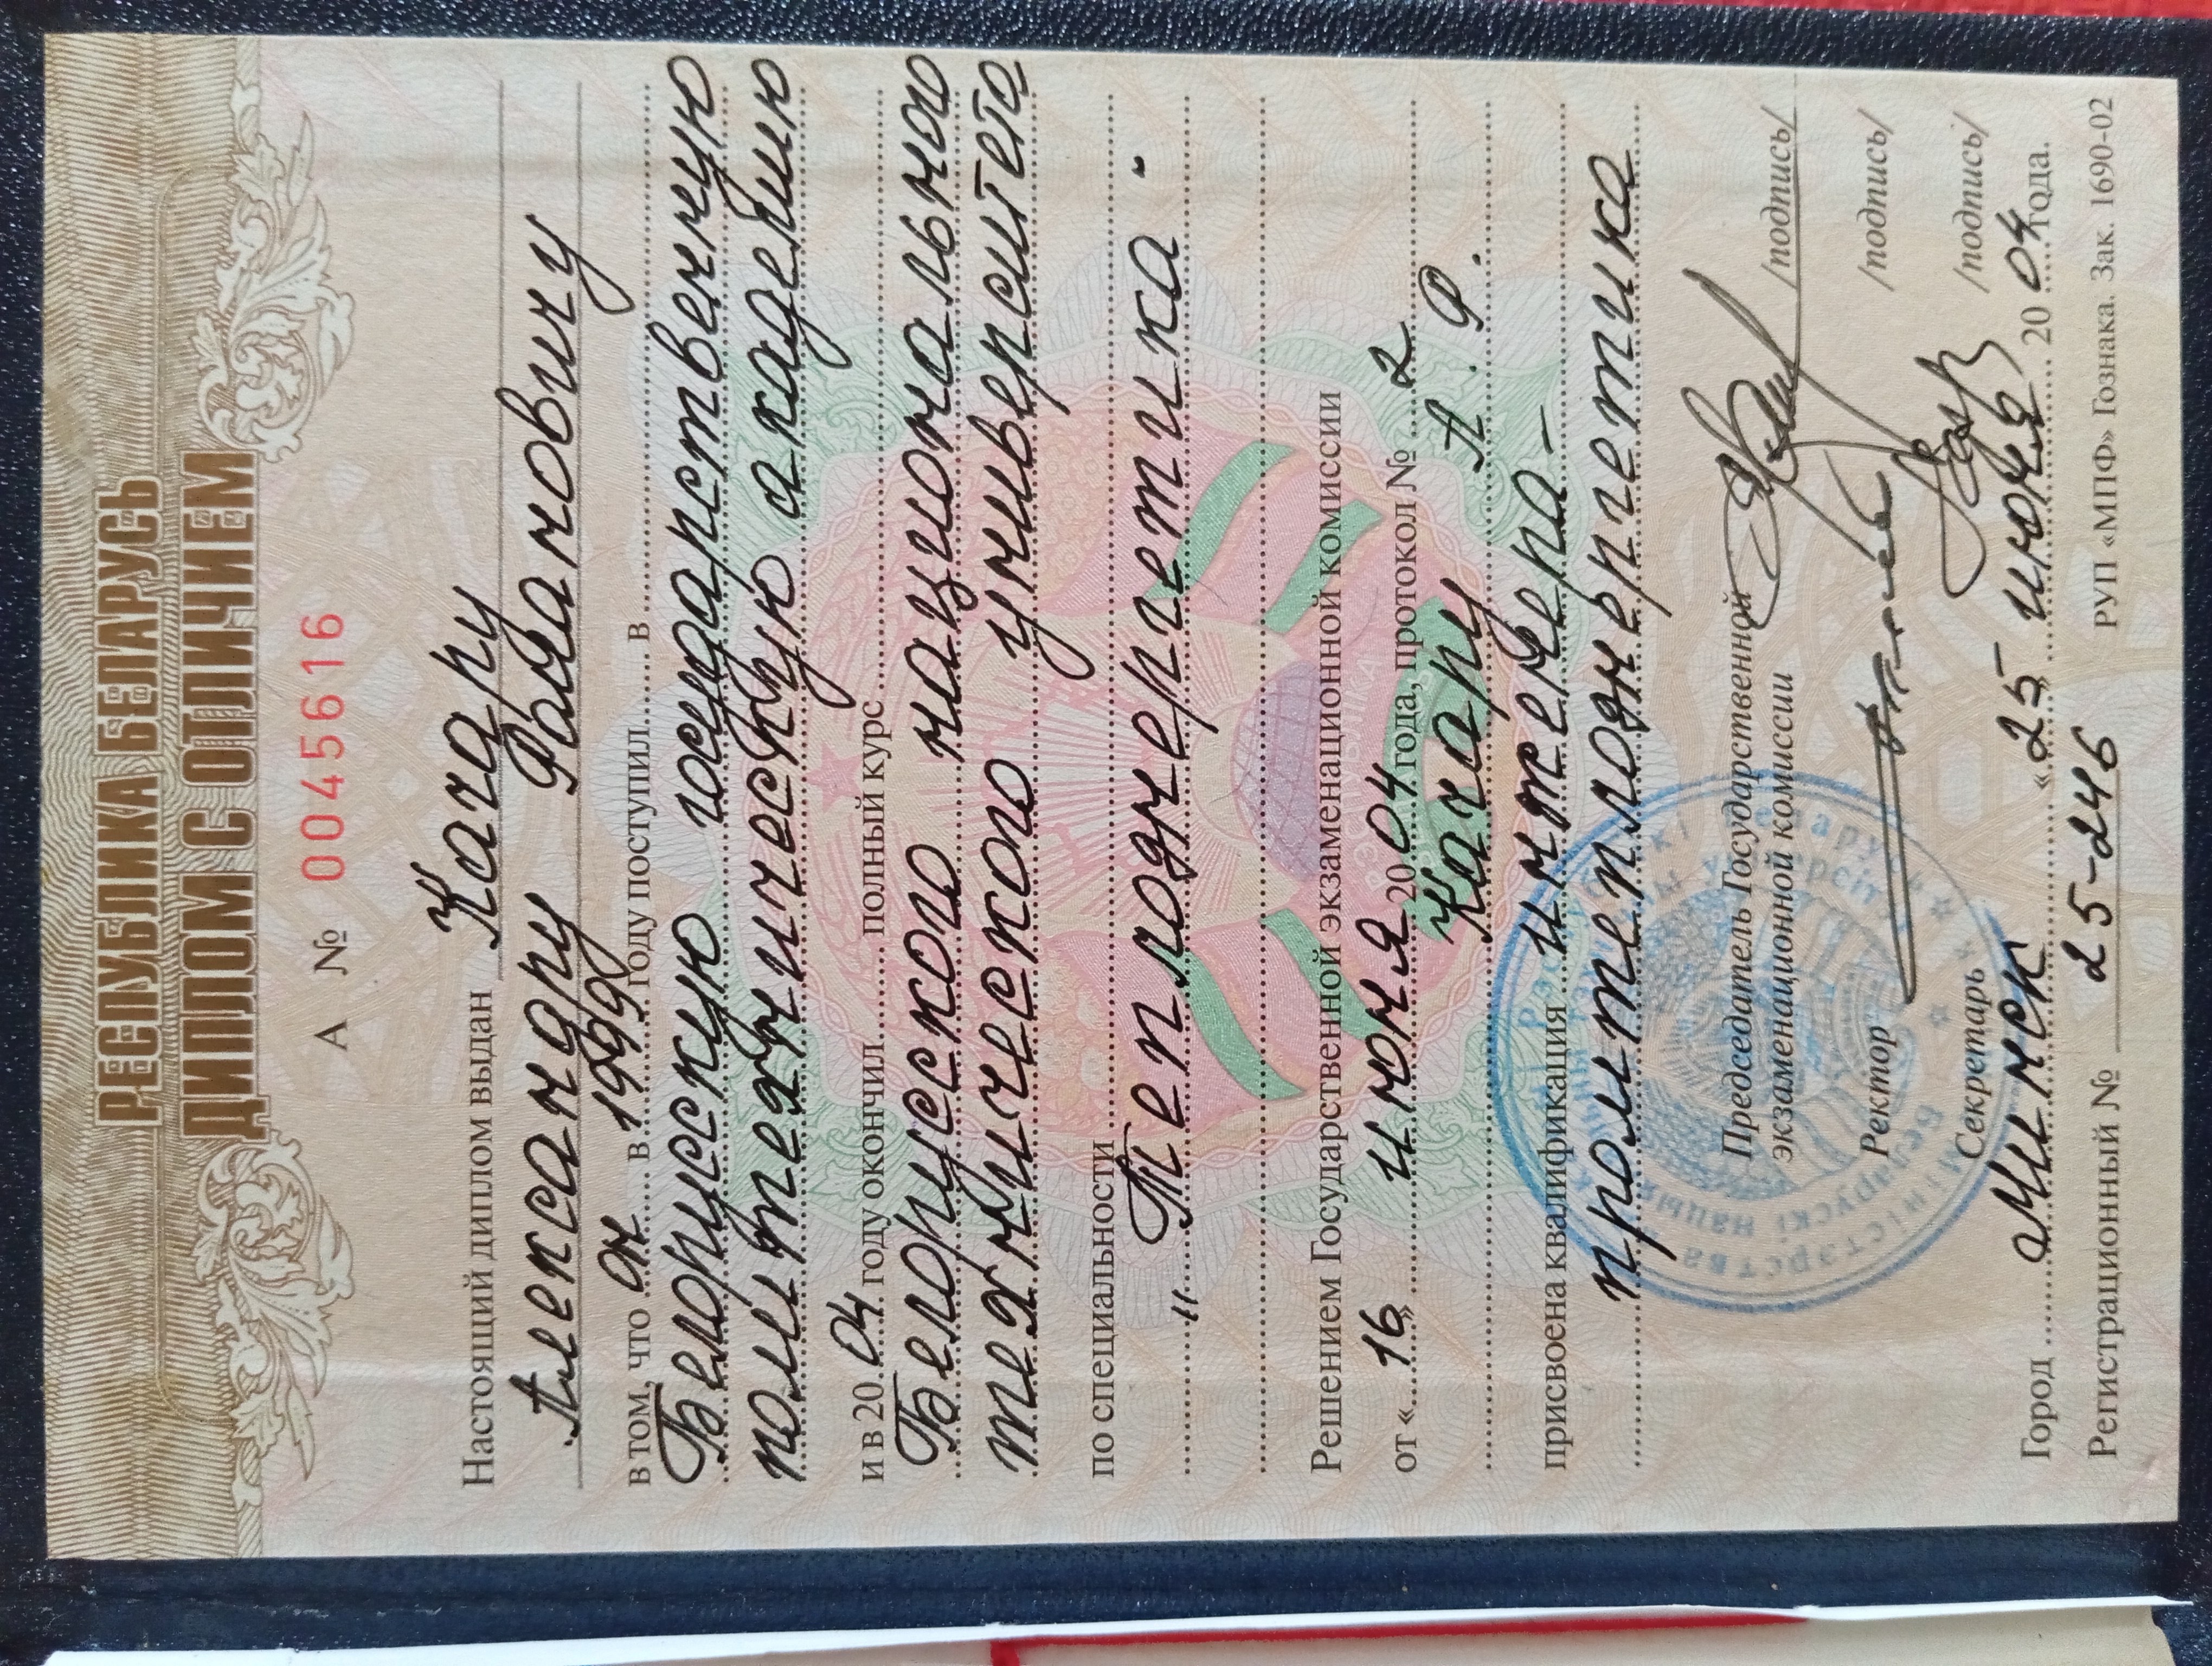 РЕСПУБЛИКА БЕЛАРУСЬ
ДИПЛОМ С ОТЛИЧИЕМ
А № 0045616
Настоящий диплом выдан
Александру Романовичу
в том, что он в 1999 году поступил в
Белорусскую государственную
политехническую академию
и в 2004 году окончил полный курс
Белорусского национального
технического университета
по специальности
"Теплоэнергетика".
Решением Государственной экзаменационной комиссии
от «16» июня 2004 года, протокол № 2
А. Р.
присвоена квалификация инженера-
промтеплоэнергетика
Председатель Государственной
экзаменационной комиссии /подпись/
Ректор /подпись/
Секретарь /подпись/
Город Минск «25» июня 2004 года.
Регистрационный № 25-246 РУП «МПФ» Гознака. Зак. 1690-02